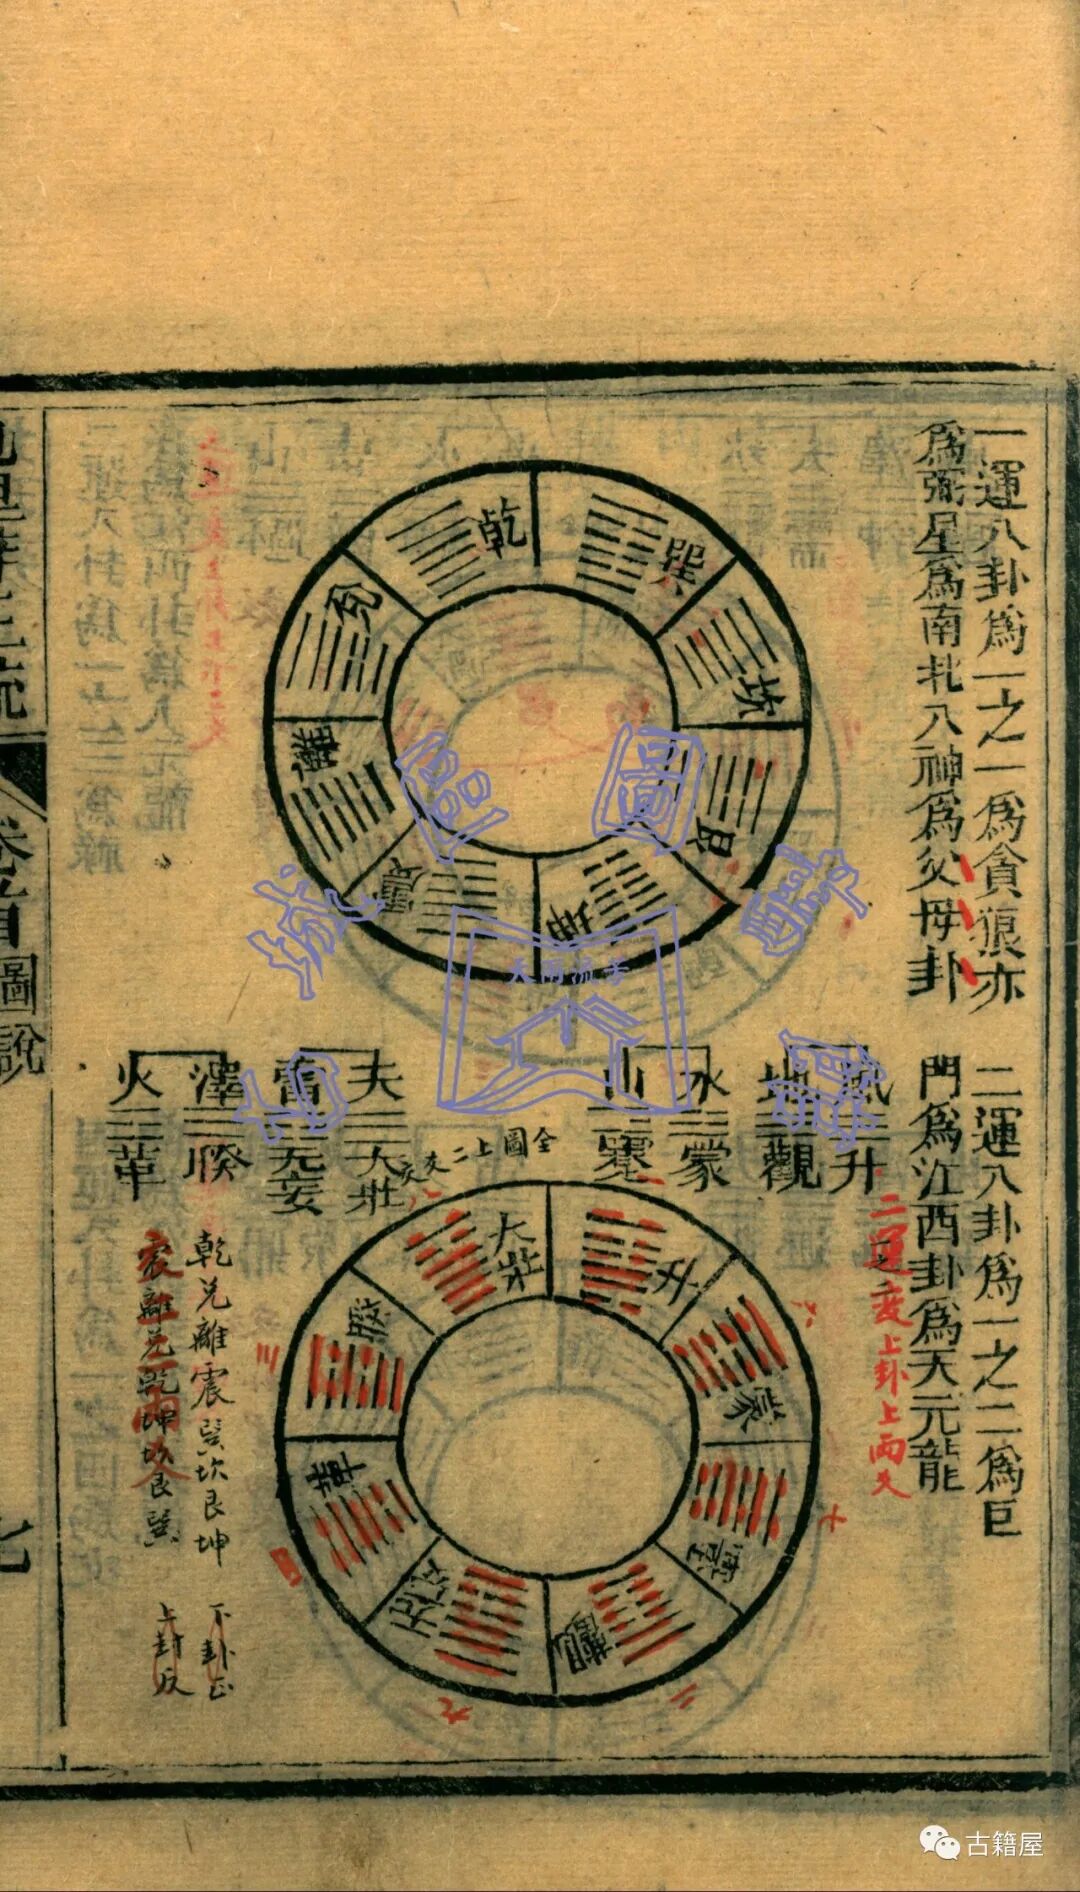 一運八卦爲一之一爲貪狼亦
爲弼星爲南北八神爲父母卦
二運八卦爲一之二爲巨
門爲江西卦爲天元龍
二運之变上卦上兩爻
乾
巽
坎
艮
坤
震
離
兌
風 升
地 觀
水 蒙
山 蹇
天 大壯
雷 无妄
澤 睽
火 革
全圖上二爻变
大壯
升
蒙
蹇
觀
无妄
革
睽
二
三
九
乾兌離震巽坎艮坤 下卦正
震離兌乾坤坎艮巽 上卦反
卷首圖說
七
古籍屋